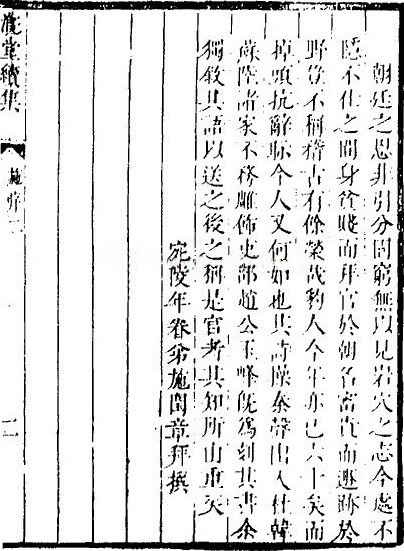 朝廷之恩非引分固窮無以見岩穴之志今處不
隱不仕之間身貧賤而拜官於朝名富貴而遯跡於
野豈不稱稽古有餘榮哉豹人今年亦已六十矣而
掉頭抗辭眎今人又何如也其詩操秦聲出入杜韓
蘇陸諸家不務雕飾吏部趙公玉峰既爲刻其書余
獨敘其語以送之後之稱是官者其知所由重矣
宛陵年眷弟施閏章拜撰
溉堂續集
施序
二